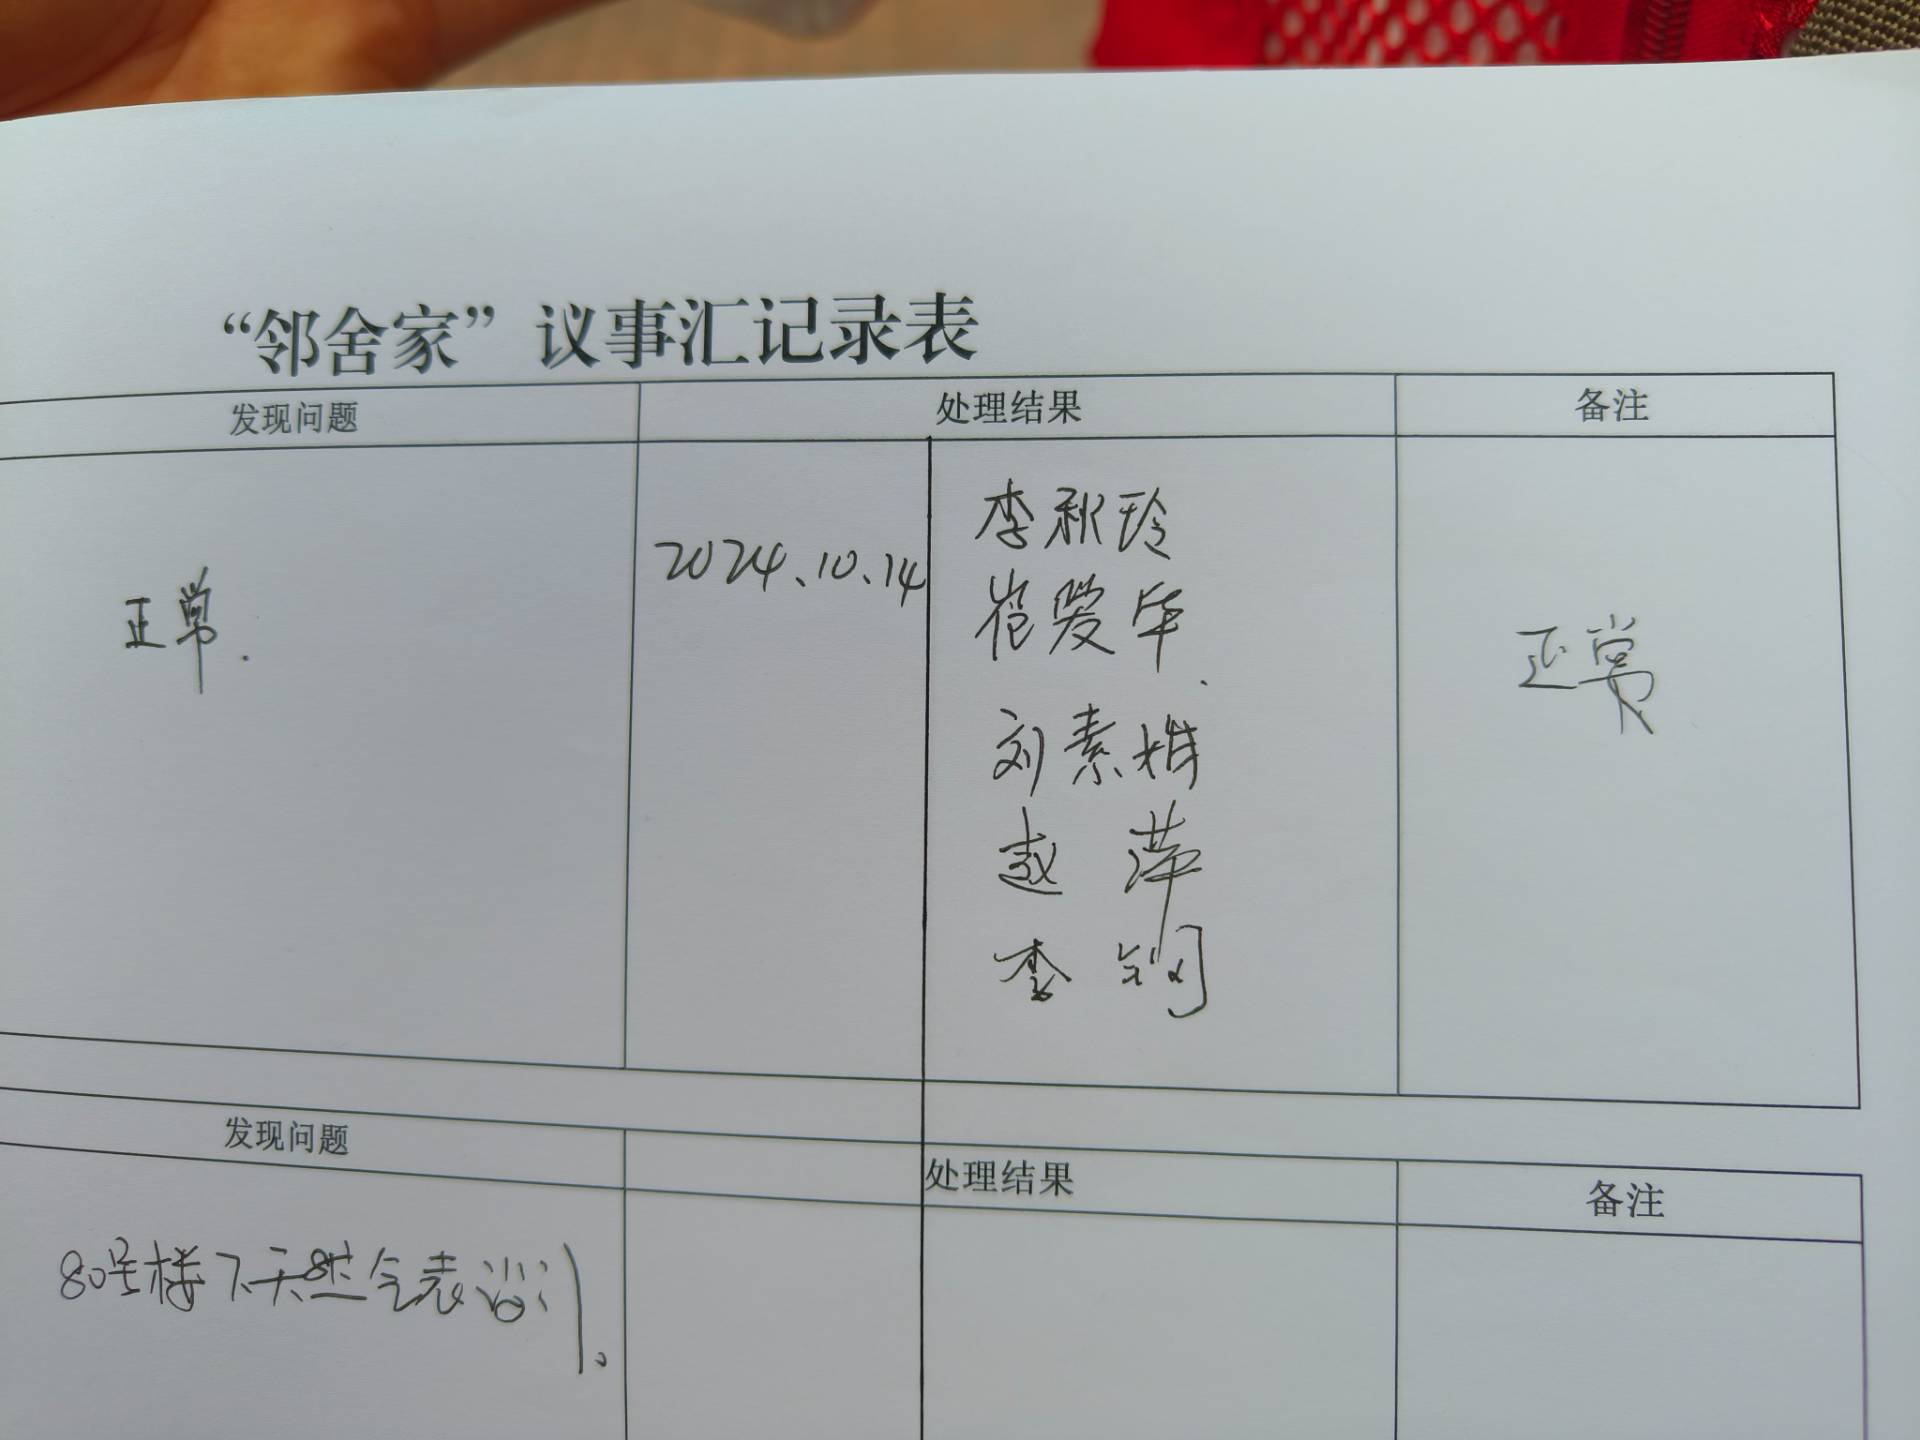 “邻舍家”议事汇记录表
发现问题 处理结果 备注
正常. 2024、10、14 李秋玲 正常
崔爱华.
刘素梅
赵萍
李钢
发现问题 处理结果 备注
80号楼下天然气表